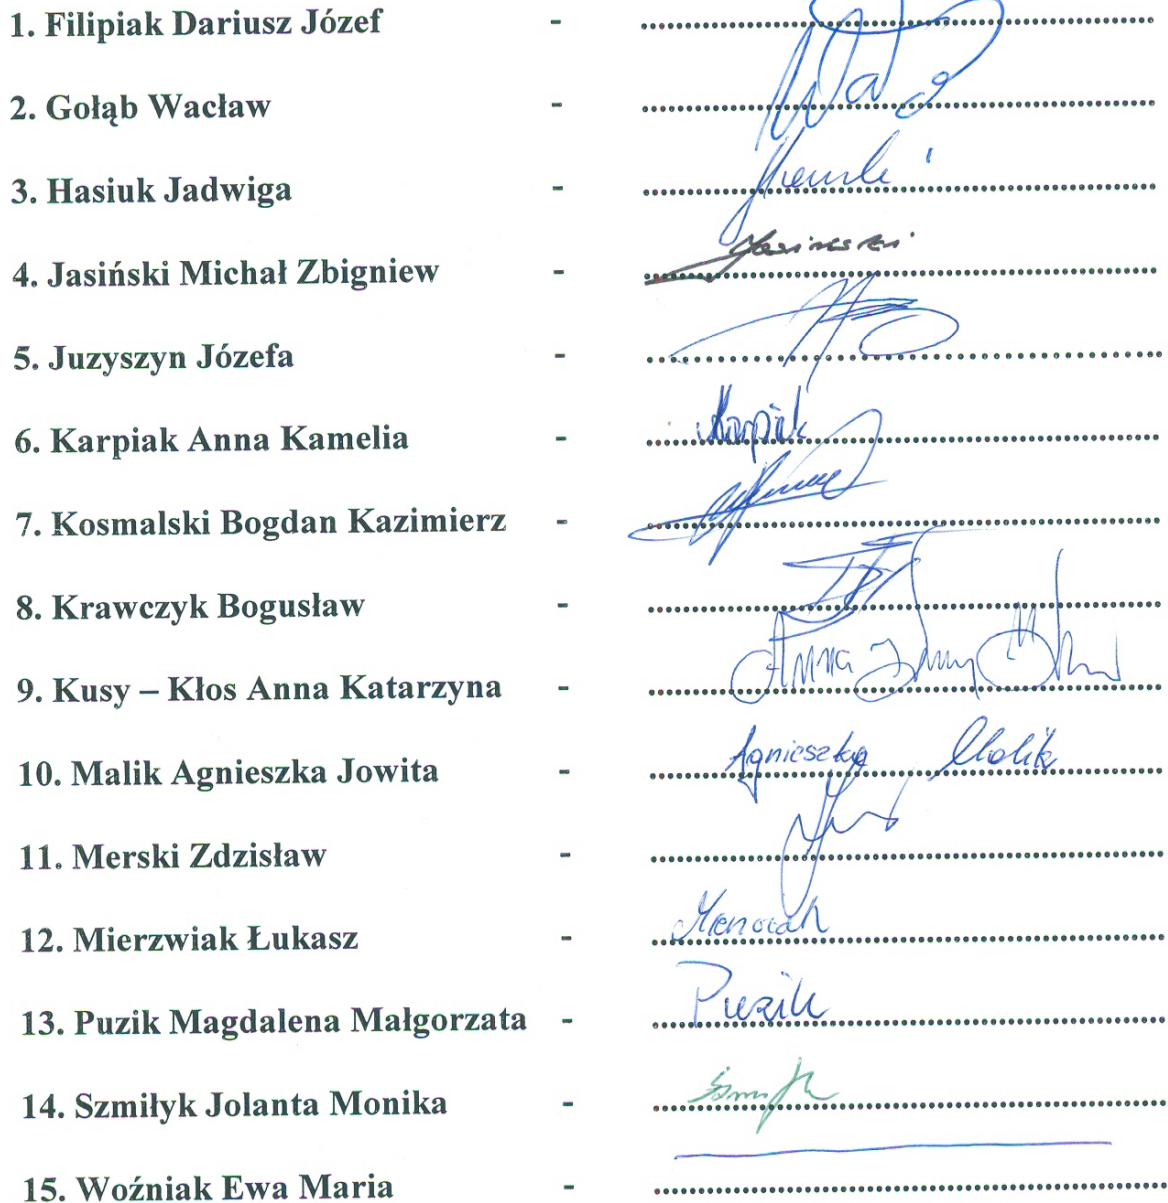 1. Filipiak Dariusz Józef - ....................
2. Gołąb Wacław - ....................
3. Hasiuk Jadwiga - ....................
4. Jasiński Michał Zbigniew - Jasiński
5. Juzyszyn Józefa - ....................
6. Karpiak Anna Kamelia - Karpiak
7. Kosmalski Bogdan Kazimierz - ....................
8. Krawczyk Bogusław - ....................
9. Kusy – Kłos Anna Katarzyna - Anna
10. Malik Agnieszka Jowita - Agnieszka Malik
11. Merski Zdzisław - ....................
12. Mierzwiak Łukasz - ....................
13. Puzik Magdalena Małgorzata - Puzik
14. Szmiłyk Jolanta Monika - ....................
15. Woźniak Ewa Maria - ....................